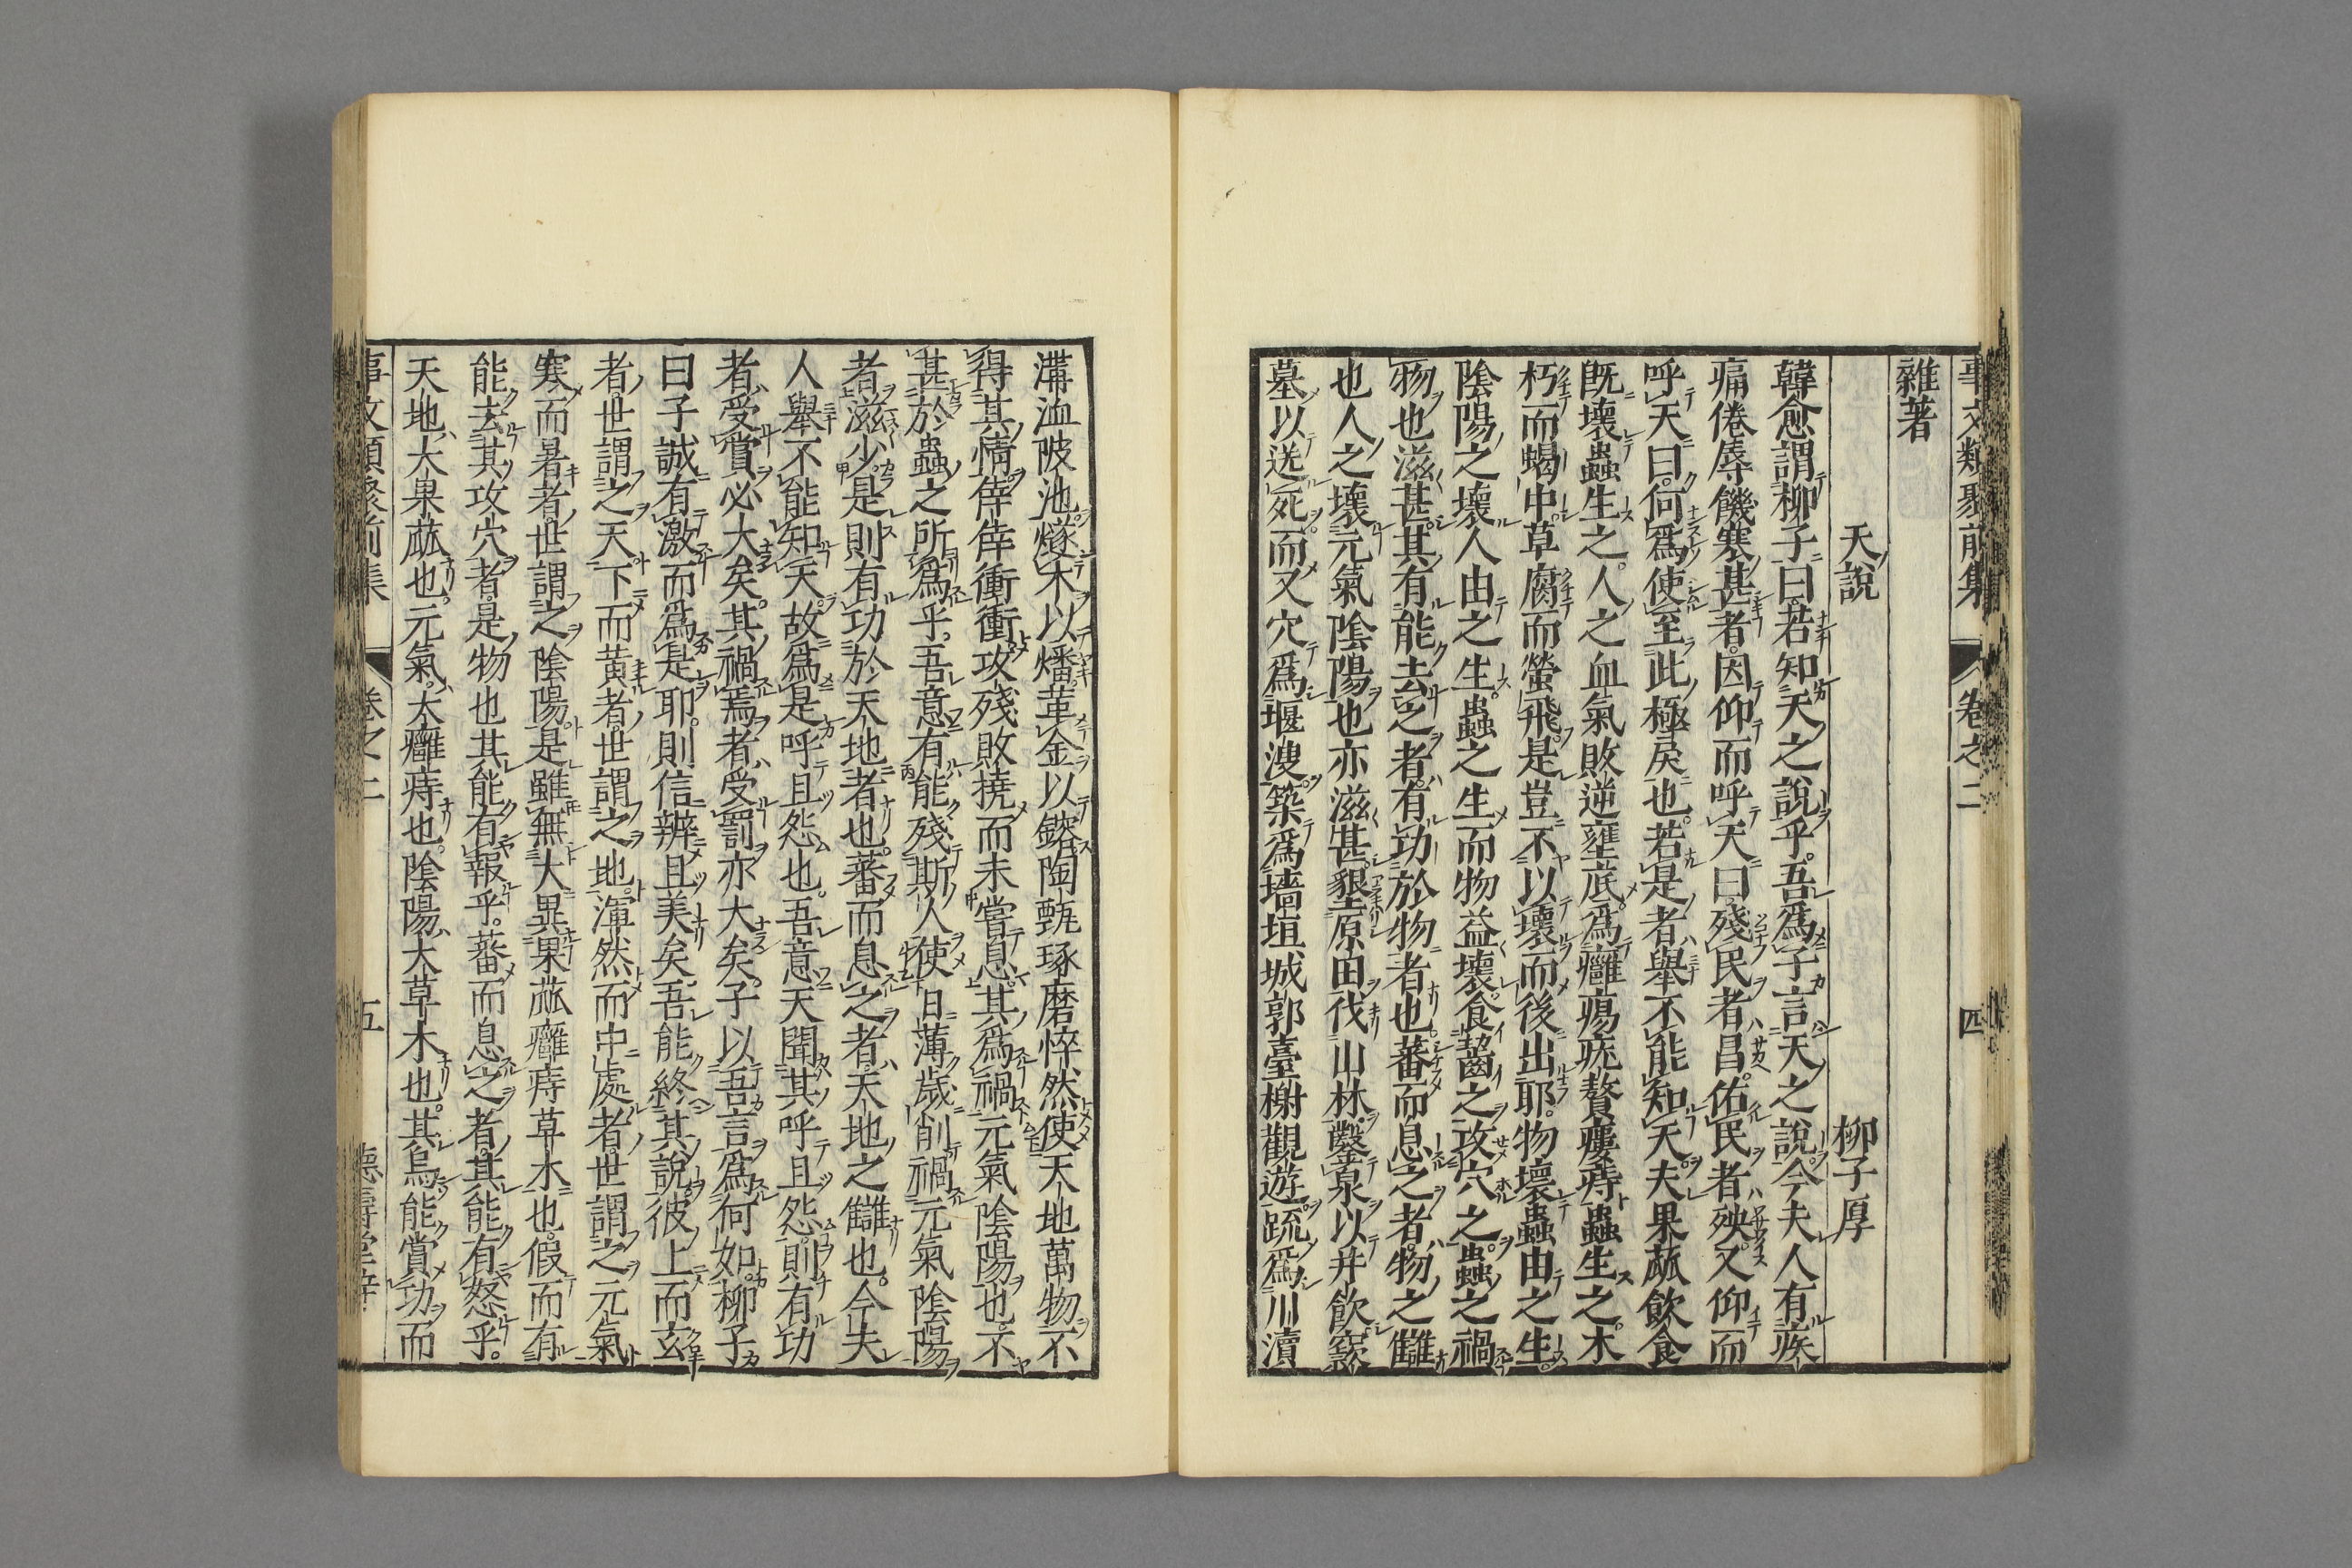 事文類聚前集 卷之二 四
雜著
天說 柳子厚
韓愈謂柳子曰若知天之說乎吾爲子言天之說今夫人有疾
痛倦辱饑寒甚者因仰而呼天曰殘民者昌佑民者殃又仰而
呼天曰何爲使至此極戾也若是者舉不能知天夫果蓏飲食
既壞蟲生之人之血氣敗逆壅底爲癰瘍疣贅瘻痔蟲生之木
朽而蝎中草腐而螢飛是豈不以壞而後出耶物壞蟲由之生
陰陽之壞人由之生蟲之生而物益壞食齧之攻穴之蟲之禍
物也滋甚其有能去之者有功於物者也蕃而息之者物之讎
也人之壞元氣陰陽也亦滋甚墾原田伐山林鑿泉以井飲窾
墓以送死而又穴爲堰溲築爲墻垣城郭臺榭觀遊䟽爲川瀆
溝洫陂池燧木以燔革金以鎔陶甄琢磨悴然使天地萬物不
得其情倖倖衝衝攻殘敗撓而未嘗息其爲禍元氣陰陽也不
甚於蟲之所爲乎吾意有能殘斯人使日薄歲削禍元氣陰陽
者滋少是則有功於天地者也蕃而息之者天地之讎也今夫
人舉不能知天故爲是呼且怨也吾意天聞其呼且怨則有功
者受賞必大矣其禍焉者受罰亦大矣子以吾言爲何如柳子
曰子誠有激而爲是耶則信辨且美矣吾能終其說彼上而玄
者世謂之天下而黄者世謂之地渾然而中處者世謂之元氣
寒而暑者世謂之陰陽是雖無大異果蓏癰痔草木也假而有
能去其攻穴者是物也其能有報乎蕃而息之者其能有怒乎
天地大果蓏也元氣大癰痔也陰陽大草木也其烏能賞功而
事文類聚前集 卷之二 五